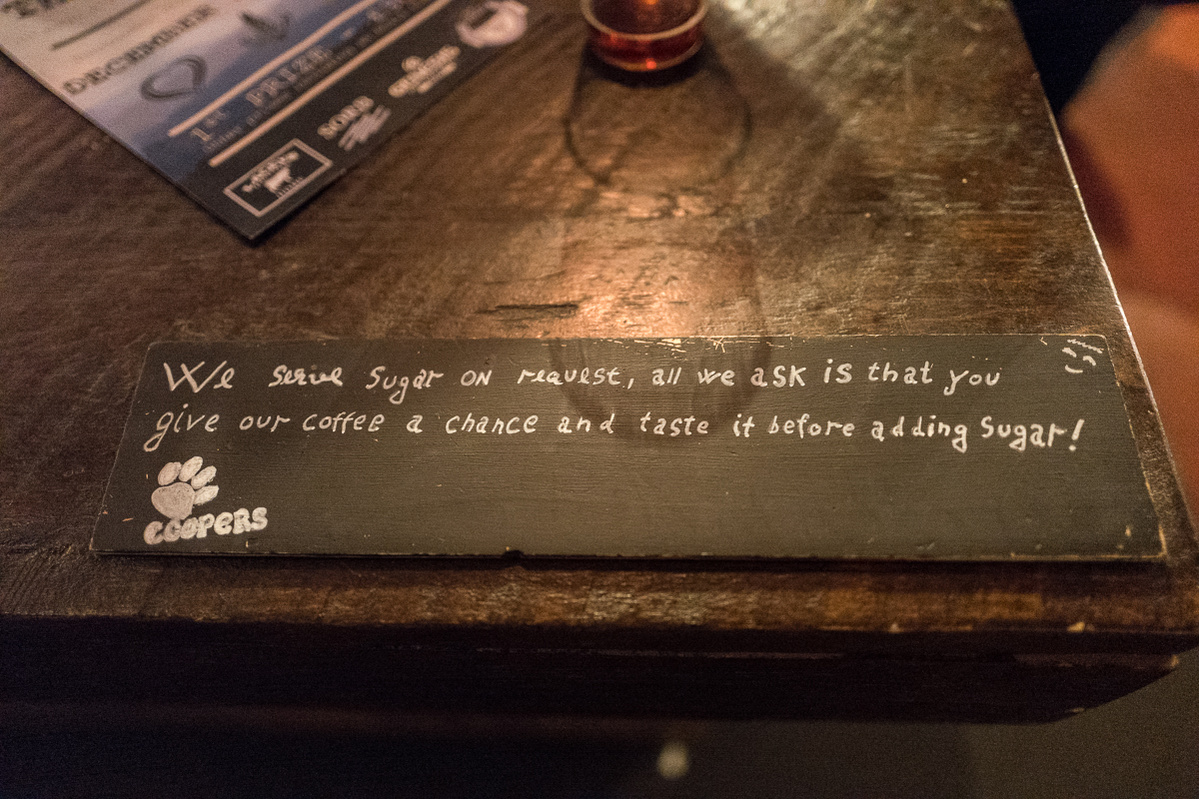 DECEMBER
1ST PRIZE
We serve Sugar on request, all we ask is that you
give our coffee a chance and taste it before adding Sugar!
COOPERS